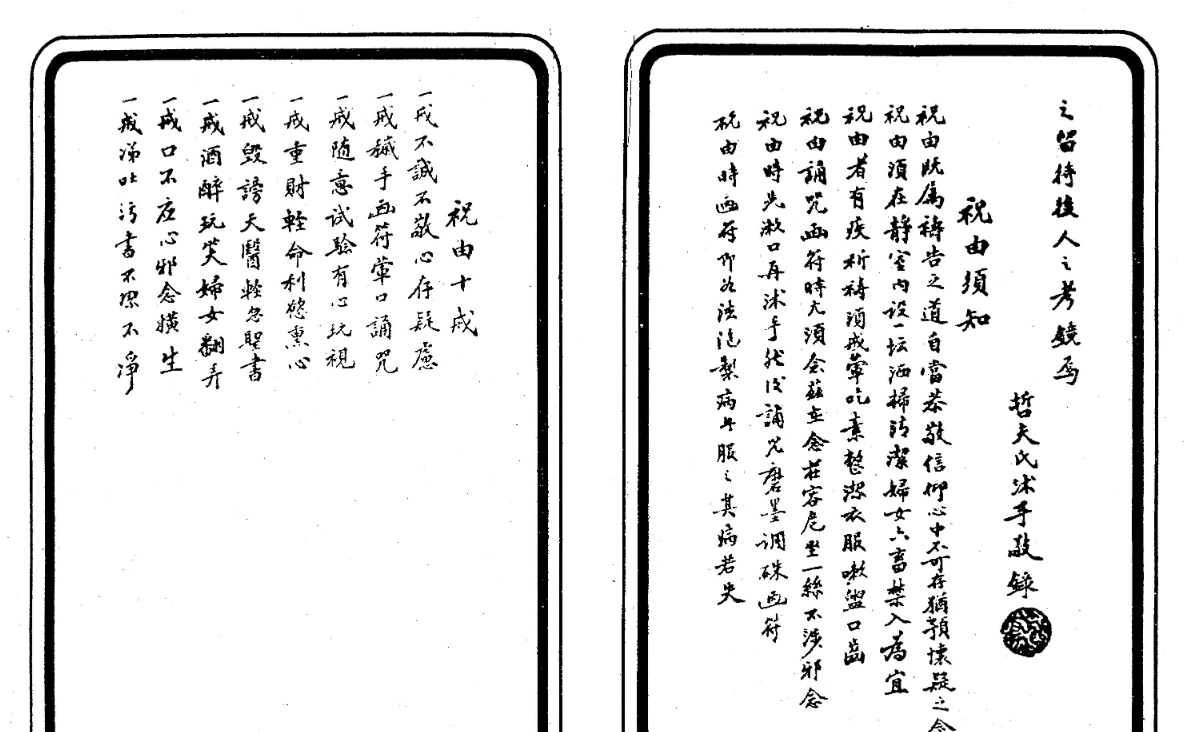 之留待後人之考鏡焉
哲夫氏沭手敬錄
祝由須知
祝由既属禱告之道自當恭敬信仰心中不可存猶預懷疑之念
祝由須在靜室內设一坛洒掃清潔婦女六畜禁入為宜
祝由者有疾祈禱須戒葷吃素整潔衣服嗽盥口齒
祝由誦咒画符時尤須念茲在念莊容危坐一絲不涉邪念
祝由時先漱口再沭手然後誦咒磨墨调硃画符
祝由時画符即如法泡製病者服之其病若失
祝由十戒
一戒不誠不敬心存疑慮
一戒穢手画符葷口誦咒
一戒随意试驗有心玩視
一戒重財輕命利慾熏心
一戒毀謗天醫輕忽聖書
一戒酒醉玩笑婦女翻弄
一戒口不应心邪念横生
一戒涕吐污書不潔不淨